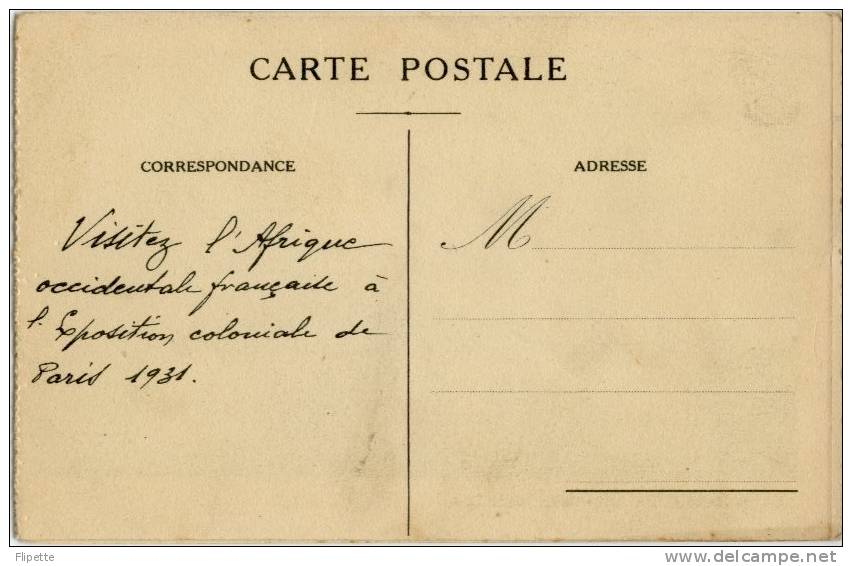 CARTE POSTALE
CORRESPONDANCE
Visitez l'Afrique
occidentale française à
l'Exposition coloniale de
Paris 1931.
ADRESSE
M
Flipette
www.delcampe.net